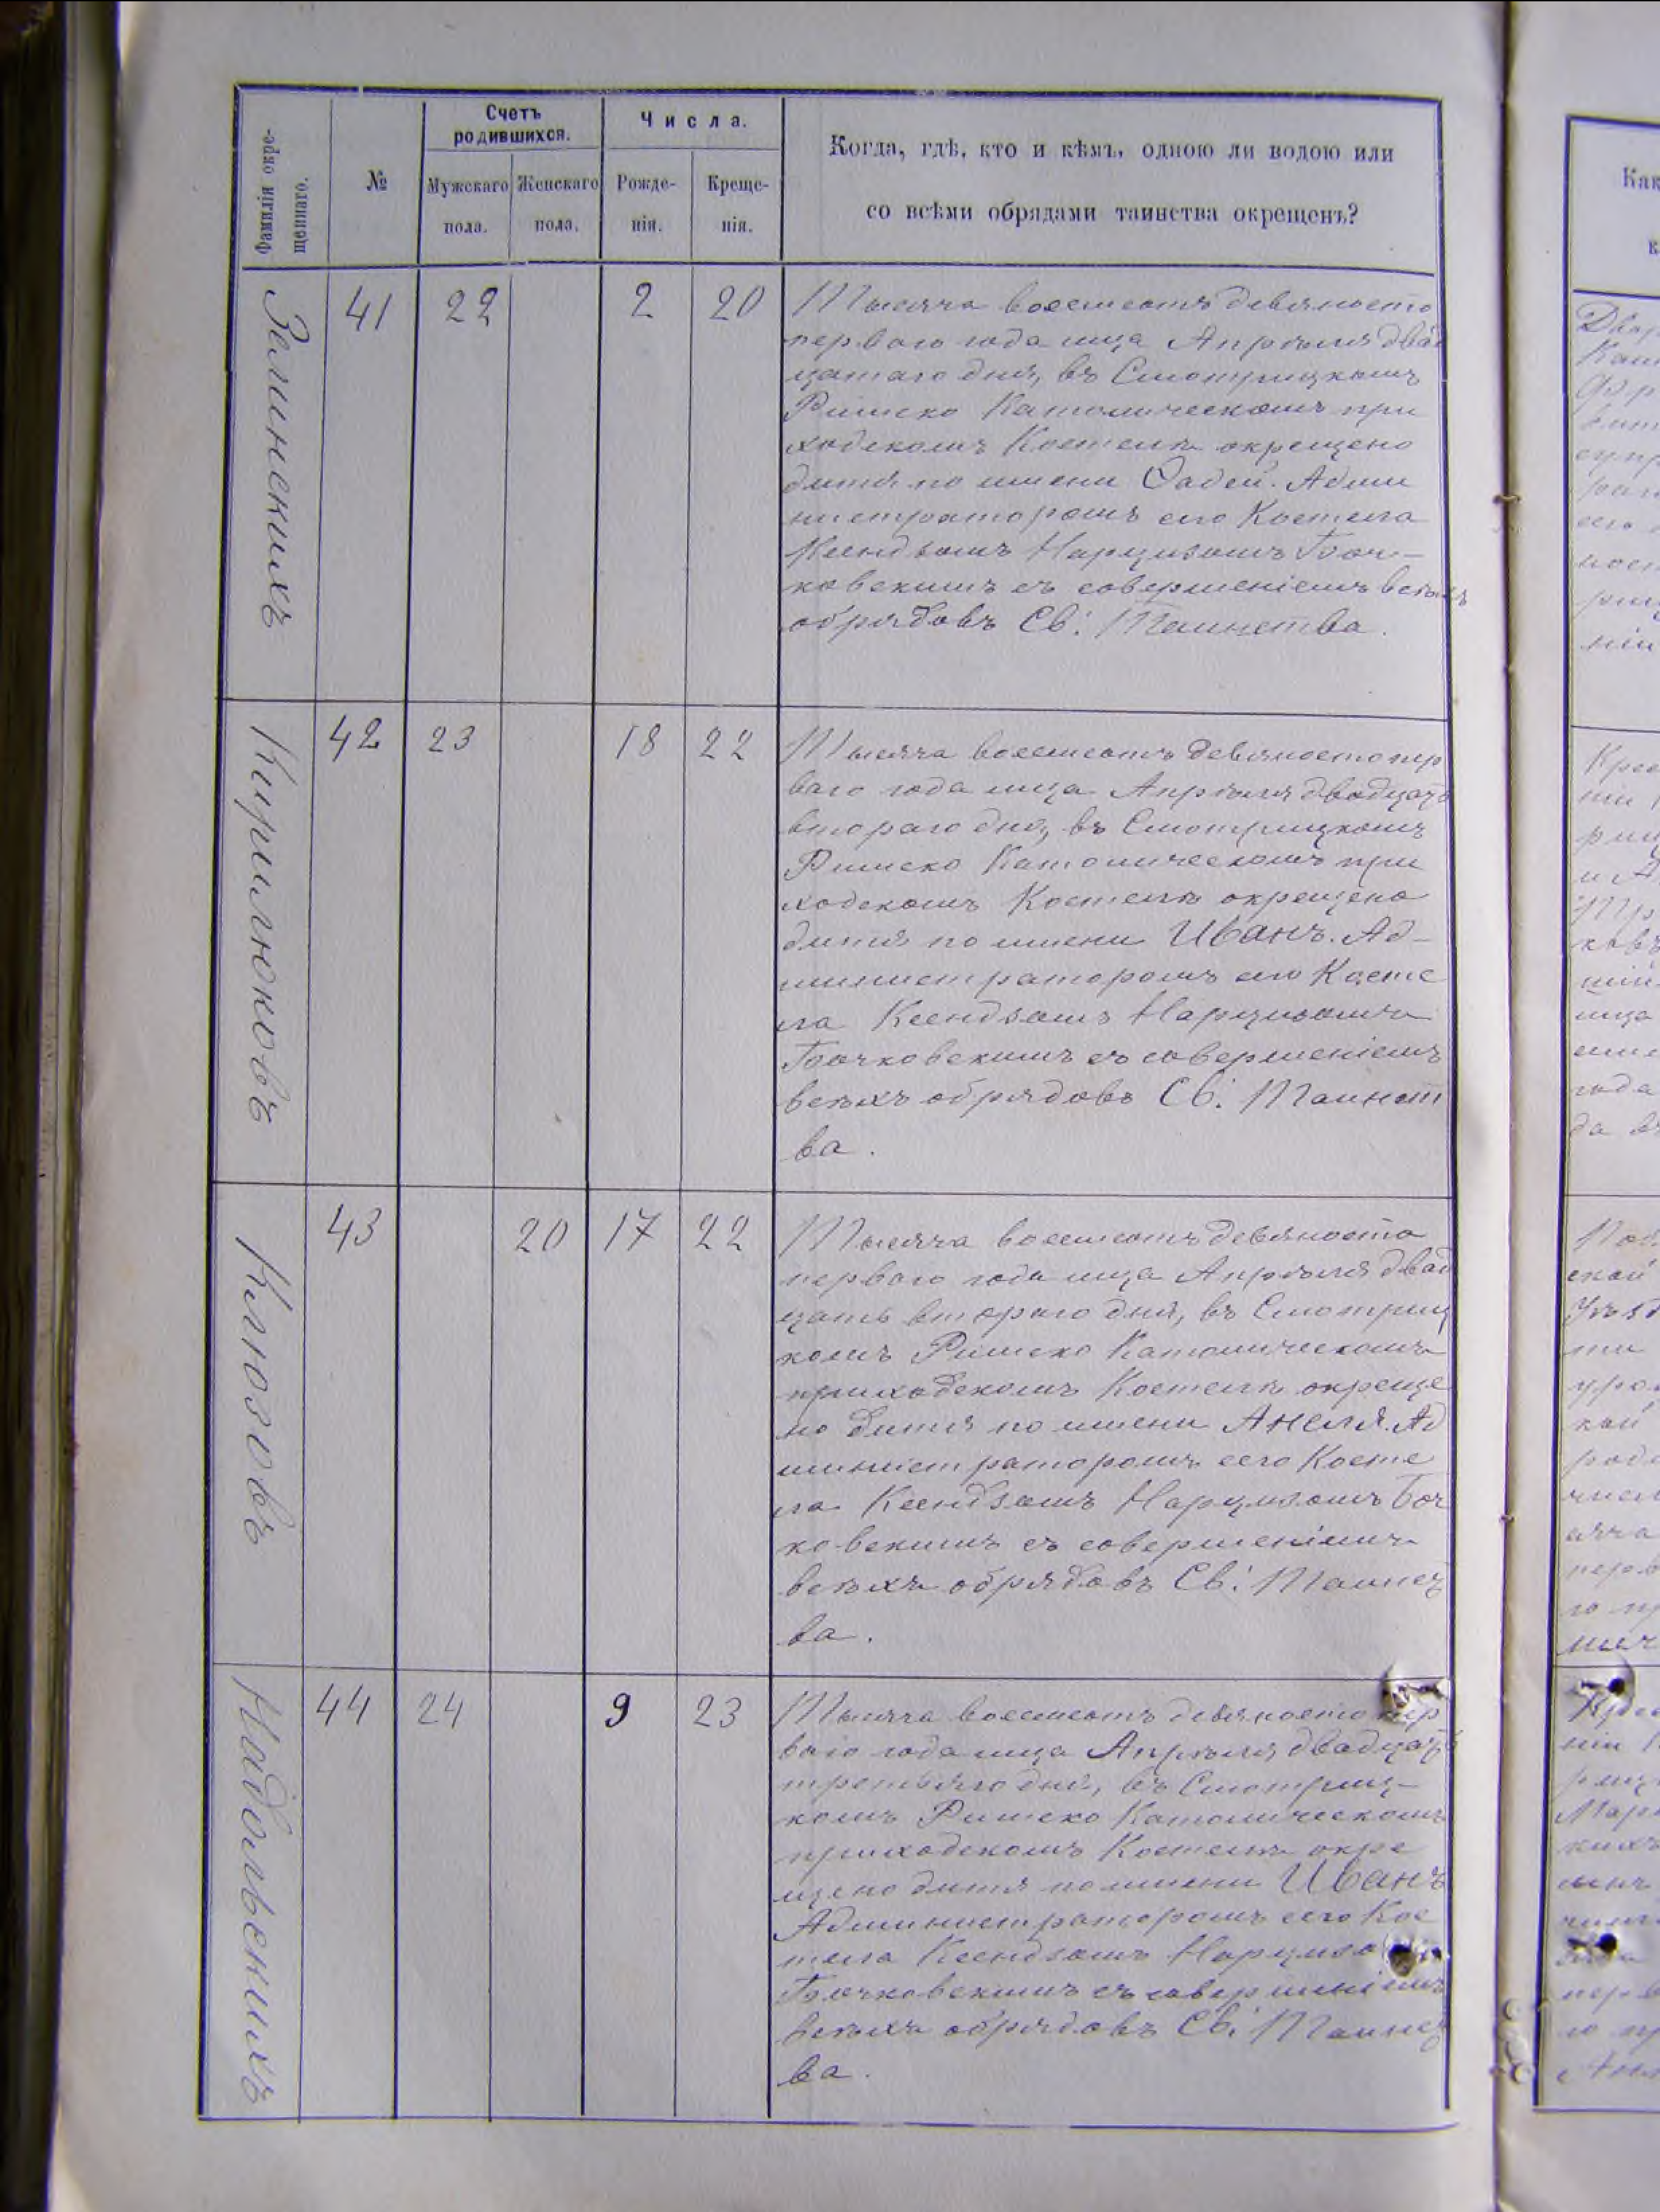 Фамилія окре-
щеннаго.
№
Счетъ
родившихся.
Мужскаго
пола.
Женскаго
пола.
Числа.
Рожде-
нія.
Креще-
нія.
Когда, гдѣ, кто и кѣмъ, одною ли водою или
со всѣми обрядами таинства окрещенъ?
Зелинскихъ
41
22
2
20
Тысяча восемсотъ девяносто
перваго года мца Апрѣля двад
цатаго дня, въ Смотрицкомъ
Римско Католическомъ при
ходскомъ Костелѣ окрещено
дитя по имени Ѳадей. Адми
нистраторомъ сего Костела
Ксендзомъ Нарцизомъ Боч-
ковскимъ съ совершеніемъ всѣхъ
обрядовъ Св: Таинства.
Кирилюковъ
42
23
18
22
Тысяча восемсотъ девяносто пер
ваго года мца Апрѣля двадцать
втораго дня, въ Смотрицкомъ
Римско Католическомъ при
ходскомъ Костелѣ окрещено
дитя по имени Иванъ. Ад-
министраторомъ сего Косте
ла Ксендзомъ Нарцизомъ
Бочковскимъ съ совершеніемъ
всѣхъ обрядовъ Св: Таинст
ва.
Клюзовъ
43
20
17
22
Тысяча восемсотъ девяносто
перваго года мца Апрѣля двад
цать втораго дня, въ Смотриц
комъ Римско Католическомъ
приходскомъ Костелѣ окреще
но дитя по имени Анеля. Ад
министраторомъ сего Косте
ла Ксендзомъ Нарцизомъ Боч
ковскимъ съ совершеніемъ
всѣхъ обрядовъ Св: Таинст
ва.
Надольскихъ
44
24
9
23
Тысяча восемсотъ девяносто пер
ваго года мца Апрѣля двадцать
третьяго дня, въ Смотриц-
комъ Римско Католическомъ
приходскомъ Костелѣ окре
щено дитя по имени Иванъ
Администраторомъ сего Кос
тела Ксендзомъ
Бочковскимъ съ совершеніемъ
всѣхъ обрядовъ Св: Таинст
ва.